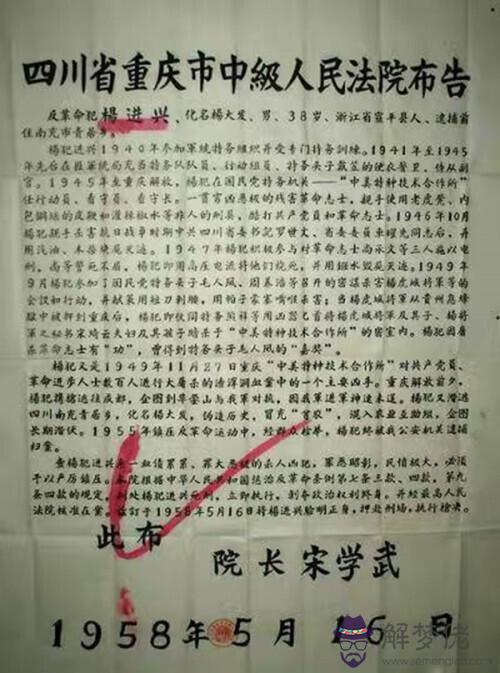 四川省重庆市中級人民法院布告
反革命犯楊进兴、化名楊大发、男、38岁、浙江省宣平县人、逮捕前
住南充市青居乡。
楊犯进兴1940年参加軍統特务組织并受专门特务訓練。1941年至1945
年先后在
充当特务队队員、行动組員、特务头子戴笠的便衣警卫、侍从副
官。1945年至重庆解放，楊犯在国民党特务机关——“中美特种技术合作所”
任行动員、看守員、看守长。一貫穷凶恶极的残害革命志士，親手使用老虎凳、内
包鋼絲的皮鞭和灌辣椒水等非人的刑具，酷打共产党員和革命志士。1946年10月
楊犯親手杀害抗日战争时期中共四川省委书記罗世文、省委委員車耀先同志后，并
用汽油、木柴焚尸灭迹。1947年楊犯积极参与对革命志士尚承文等三人施以电
刑，尚等誓死不屈，楊犯即用高压电流将他们烧死，并用鏹水毁尸灭迹。1949年
9月楊犯参加了国民党特务头子毛人凤、周养浩等召开的密謀杀害楊虎城将軍等的
会議和行动，并献策用短刀刺腰，用帕子蒙嘴喉杀害；当楊虎城将軍从貴州息烽
獄中被押到重庆后，楊犯即伙同特务熊祥等用凶器匕首将楊虎城将軍及其子、楊将
軍之秘书宋綺云夫妇及其孩子暗杀于“中美特种技术合作所”的密室内。楊犯因屠
杀革命志士有“功”，曾得到特务头子毛人凤的“嘉奖”。
楊犯又是1949年11月27日重庆“中美特种技术合作所”对共产党員、
革命进步人士数百人进行大屠杀的滔滔洞血案中的一个主要凶手。重庆解放前夕，
楊犯携槍逃往成都，企图到
与我軍对抗，因我軍进軍神速未逞。楊犯又潜逃
四川南充青居乡，化名楊大发，伪造历史，冒充“首农”，混入农业互助組，企图
长期潜伏。1955年鎮压反革命运动中，经群众检举，楊犯終被我公安机关逮捕
归案。
查楊犯进兴
一血债累累、罪大恶极的杀人凶犯，罪恶昭彰，民情极大，必須
予以严厉鎮压。本院根据中华人民共和国惩治反革命条例第七条三款、四款、第九
条四款的规定，判处楊犯进兴死刑，立即执行，剥夺政治权利終身。并经最高人民
法院核准在案。茲訂于1958年5月16日将楊进兴驗明正身，押赴刑场，执行槍决。
此布
院长宋学武
1958年5月16日
解梦佬
www.jiemenglao.com